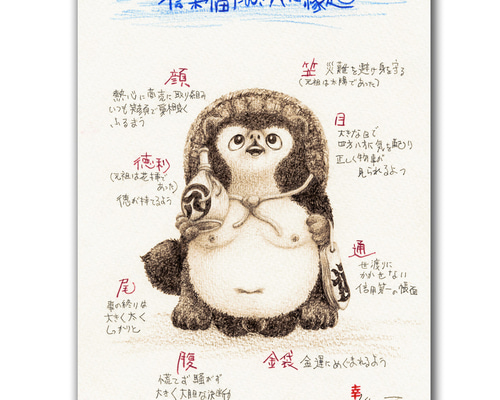 笠 災難を避け身を守る
(元祖は太陽であった)
顔
熱心に商売に取り組み
いつも笑顔で愛想よく
ふるまう
目
大きな目で
四方八方に気を配り
正しく物事が
見られるよう
徳利
(元祖は花棒で
あった)
徳が持てるよう
通
世渡りに
かかせない
信用第一の帳面
尾
事の終りは
大きく太く
しっかりと
腹
慌てず騒がず
大きく大胆な決断力
金袋 金運にめぐまれるよう
幸